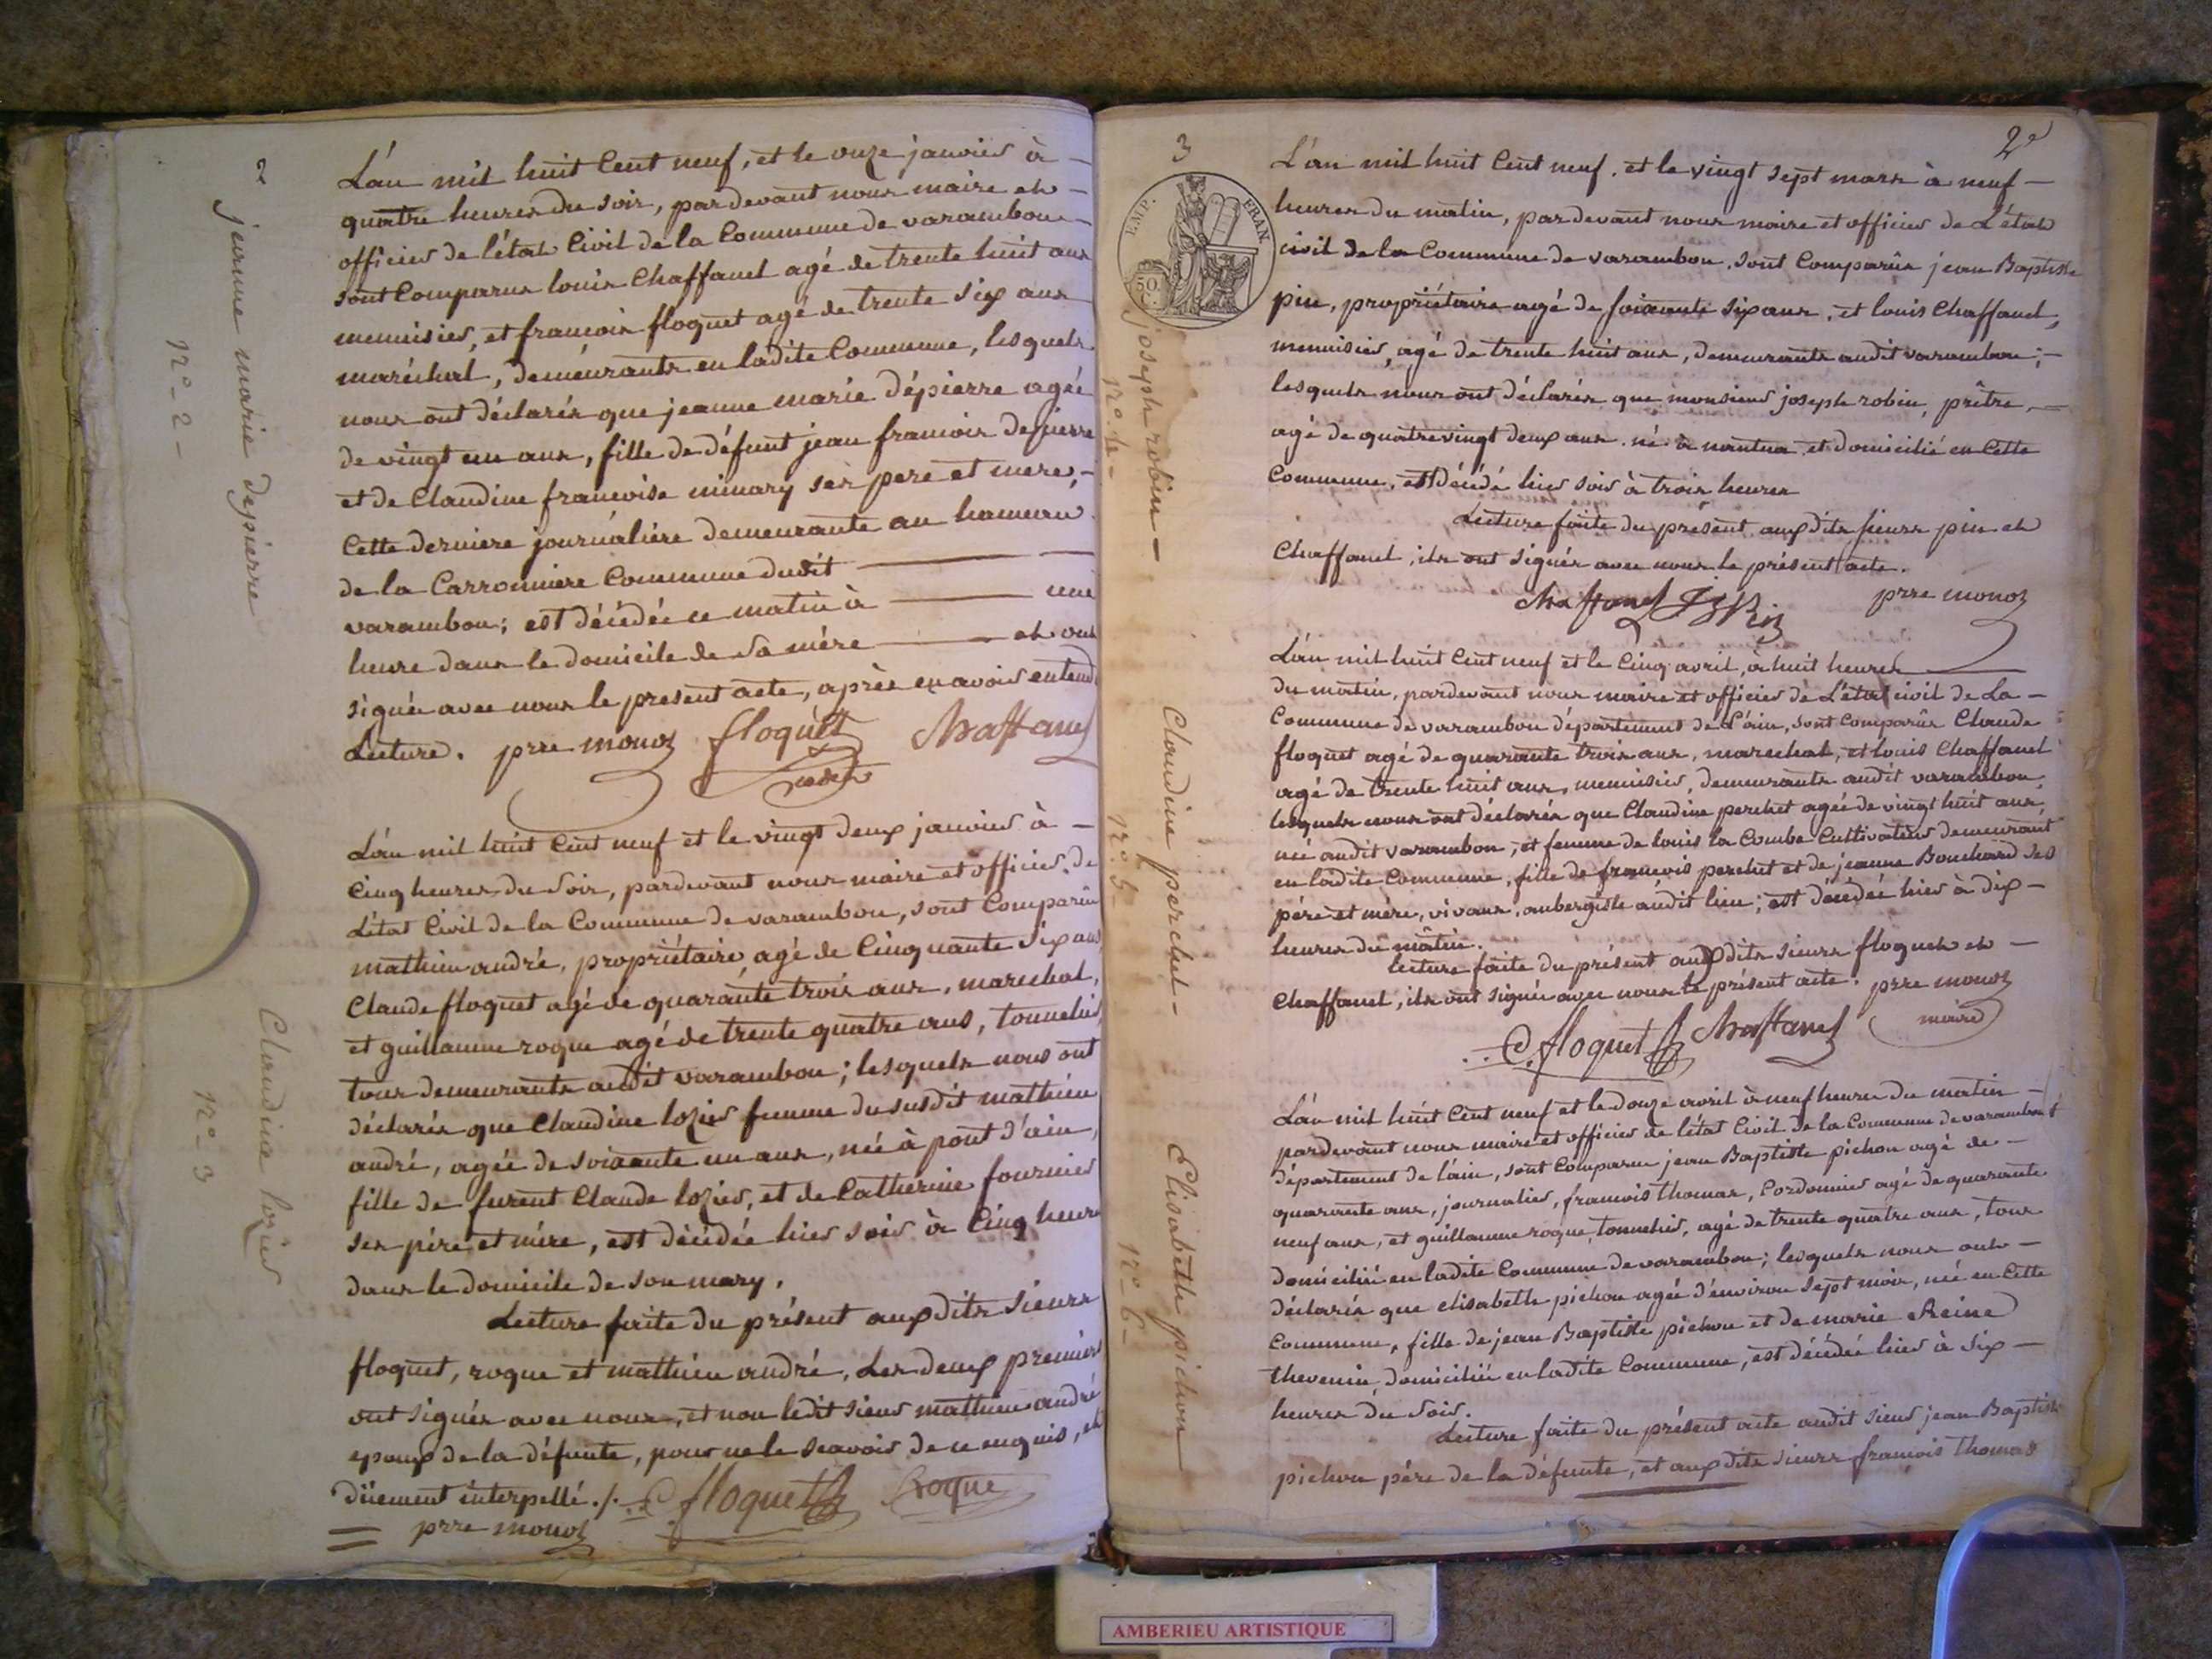 2
jeanne marie depierre
n.° 2 -
L'an mil huit Cent neuf, et le onze janvier à -
quatre heures du soir, pardevant nous maire et -
officier de l'état Civil de la Commune de varambon -
sont Comparus louis Chaffanel agé de trente huit ans
menuisier, et francois floquet agé de trente six ans
maréchal, demeurants en ladite Commune, lesquels
nous ont déclarés que jeanne marie dépierre agée
de vingt un ans, fille de défunt jean francois depierre
et de Claudine francoise minary ses pere et mere, -
Cette derniere journaliére demeurante au hameau
de la Carronniere Commune dudit
varambon; est décédée ce matin à une
heure dans le domicile de sa mére et ont
signée avec nous le present acte, après en avoir entendu
Lecture. prre monoz floquet Chaffanel
Claudine lozier
n.° 3
L'an mil huit Cent neuf et le vingt deux janvier à -
Cinq heures du soir, pardevant nous maire et officier de
L'état Civil de la Commune de varambon, sont Comparûs
mathieu andré, propriétaire, agé de Cinquante six ans
Claude floquet agé de quarante trois ans, marechal,
et guillaume roque agé de trente quatre ans, tonnelier,
tous demeurants audit varambon; lesquels nous ont
déclarés que Claudine lozier femme du susdit mathieu
andré, agée de soixante un ans, née à pont d'ain,
fille de furent Claude lozier, et de Catherine fournier
ses pére et mére, est décédée hier soir à Cinq heures
dans le domicile de son mary.
Lecture faite du présent auxdits sieurs
floquet, roque et mathieu andré, Les deux premiers
ont signés avec nous, et non ledit sieur mathieu andré
epoux de la défunte, pour ne le scavoir de ce enquis, et
düement interpellé ./. C. floquet Roque
prre monoz
3
2e
EMP. FRAN.
50
joseph robin -
n.° 4 -
L'an mil huit Cent neuf, et le vingt sept mars à neuf -
heures du matin, pardevant nous maire et officier de L'état
civil de la Commune de varambon, sont Comparûs jean Baptiste
pin, propriétaire agé de soixante six ans, et louis Chaffanel,
menuisier, agé de trente huit ans, demeurants audit varambon; -
lesquels nous ont déclarés que monsieur joseph robin, prêtre, -
agé de quatrevingt deux ans, né à nantua et domicilié en Cette
Commune, est décédé hier soir à trois heures
Lecture faite du présent auxdits sieurs pin et
Chaffanel, ils ont signés avec nous le présent acte.
Chaffanel JB Pin prre monoz
Claudine perchet -
n.° 5 -
L'an mil huit Cent neuf et le Cinq avril, à huit heures
du matin, pardevant nous maire et officier de L'état civil de La -
Commune de varambon département de L'ain, sont Comparûs Claude
floquet agé de quarante trois ans, marechal, et louis Chaffanel
agé de trente huit ans, menuisier, demeurants audit varambon,
lesquels nous ont déclarés que Claudine perchet agée de vingt huit ans,
née audit varambon, et femme de louis la Combe Cultivateur demeurant
en ladite Commune, fille de francois perchet et de jeanne Bouchard ses
pére et mére, vivans, aubergiste audit lieu; est décédée hier à dix -
heures du mâtin.
lecture faite du présent auxdits sieurs floquet et -
Chaffanel, ils ont signée avec nous le présent acte. prre monoz
maire
C. floquet Chaffanel
Elisabeth pichon
n.° 6 -
L'an mil huit Cent neuf et le douze avril à neuf heures du matin -
pardevant nous maire et officier de l'état Civil de la Commune de varambon
département de l'ain, sont Comparus jean Baptiste pichon agé de -
quarante ans, journalier, francois thomas, Cordonnier agé de quarante
neuf ans, et guillaume roque, tonnelier, agé de trente quatre ans, tous
domiciliés en ladite Commune de varambon; lesquels nous ont -
déclarés que elisabeth pichon agée d'environ sept mois, née en Cette
Commune, fille de jean Baptiste pichon et de marie Reine
thevenin, domiciliée en ladite Commune, est décédée hier à six -
heures du soir.
Lecture faite du présent acte audit sieur jean Baptiste
pichon pére de la défunte, et auxdits sieurs françois thomas
AMBERIEU ARTISTIQUE